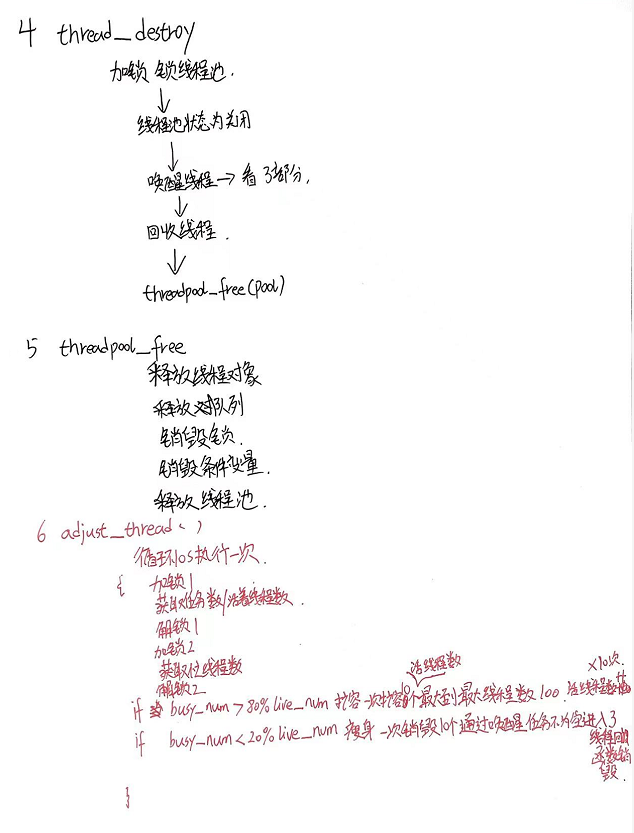 4 thread_destroy
加锁 锁线程池.
线程池状态为关闭
唤醒线程→看3部分.
回收线程.
threadpool_free(pool)
5 threadpool_free
释放线程对象
释放队列
销毁锁.
销毁条件变量.
释放线程池.
6 adjust_thread()
循环10s执行一次.
{ 加锁1
获取任务数/活着线程数.
解锁1
加锁2
获取忙线程数
解锁2
活线程数
×10次.
if busy_num > 80% live_num 扩容一次扩容10个最大到最大线程数100. 活线程数
if busy_num < 20% live_num 瘦身 一次销毁10个通过唤醒任务不为空进入3
线程回调
函数销
毁.
}